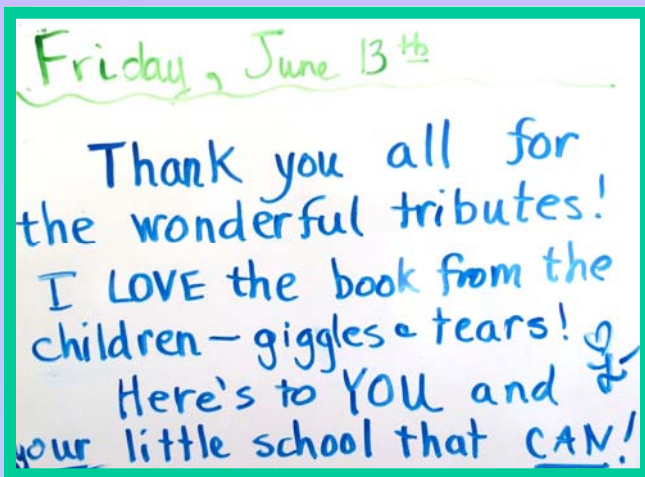 Friday, June 13th
Thank you all for
the wonderful tributes!
I LOVE the book from the
children - giggles & tears!
Here's to YOU and
your little school that CAN!